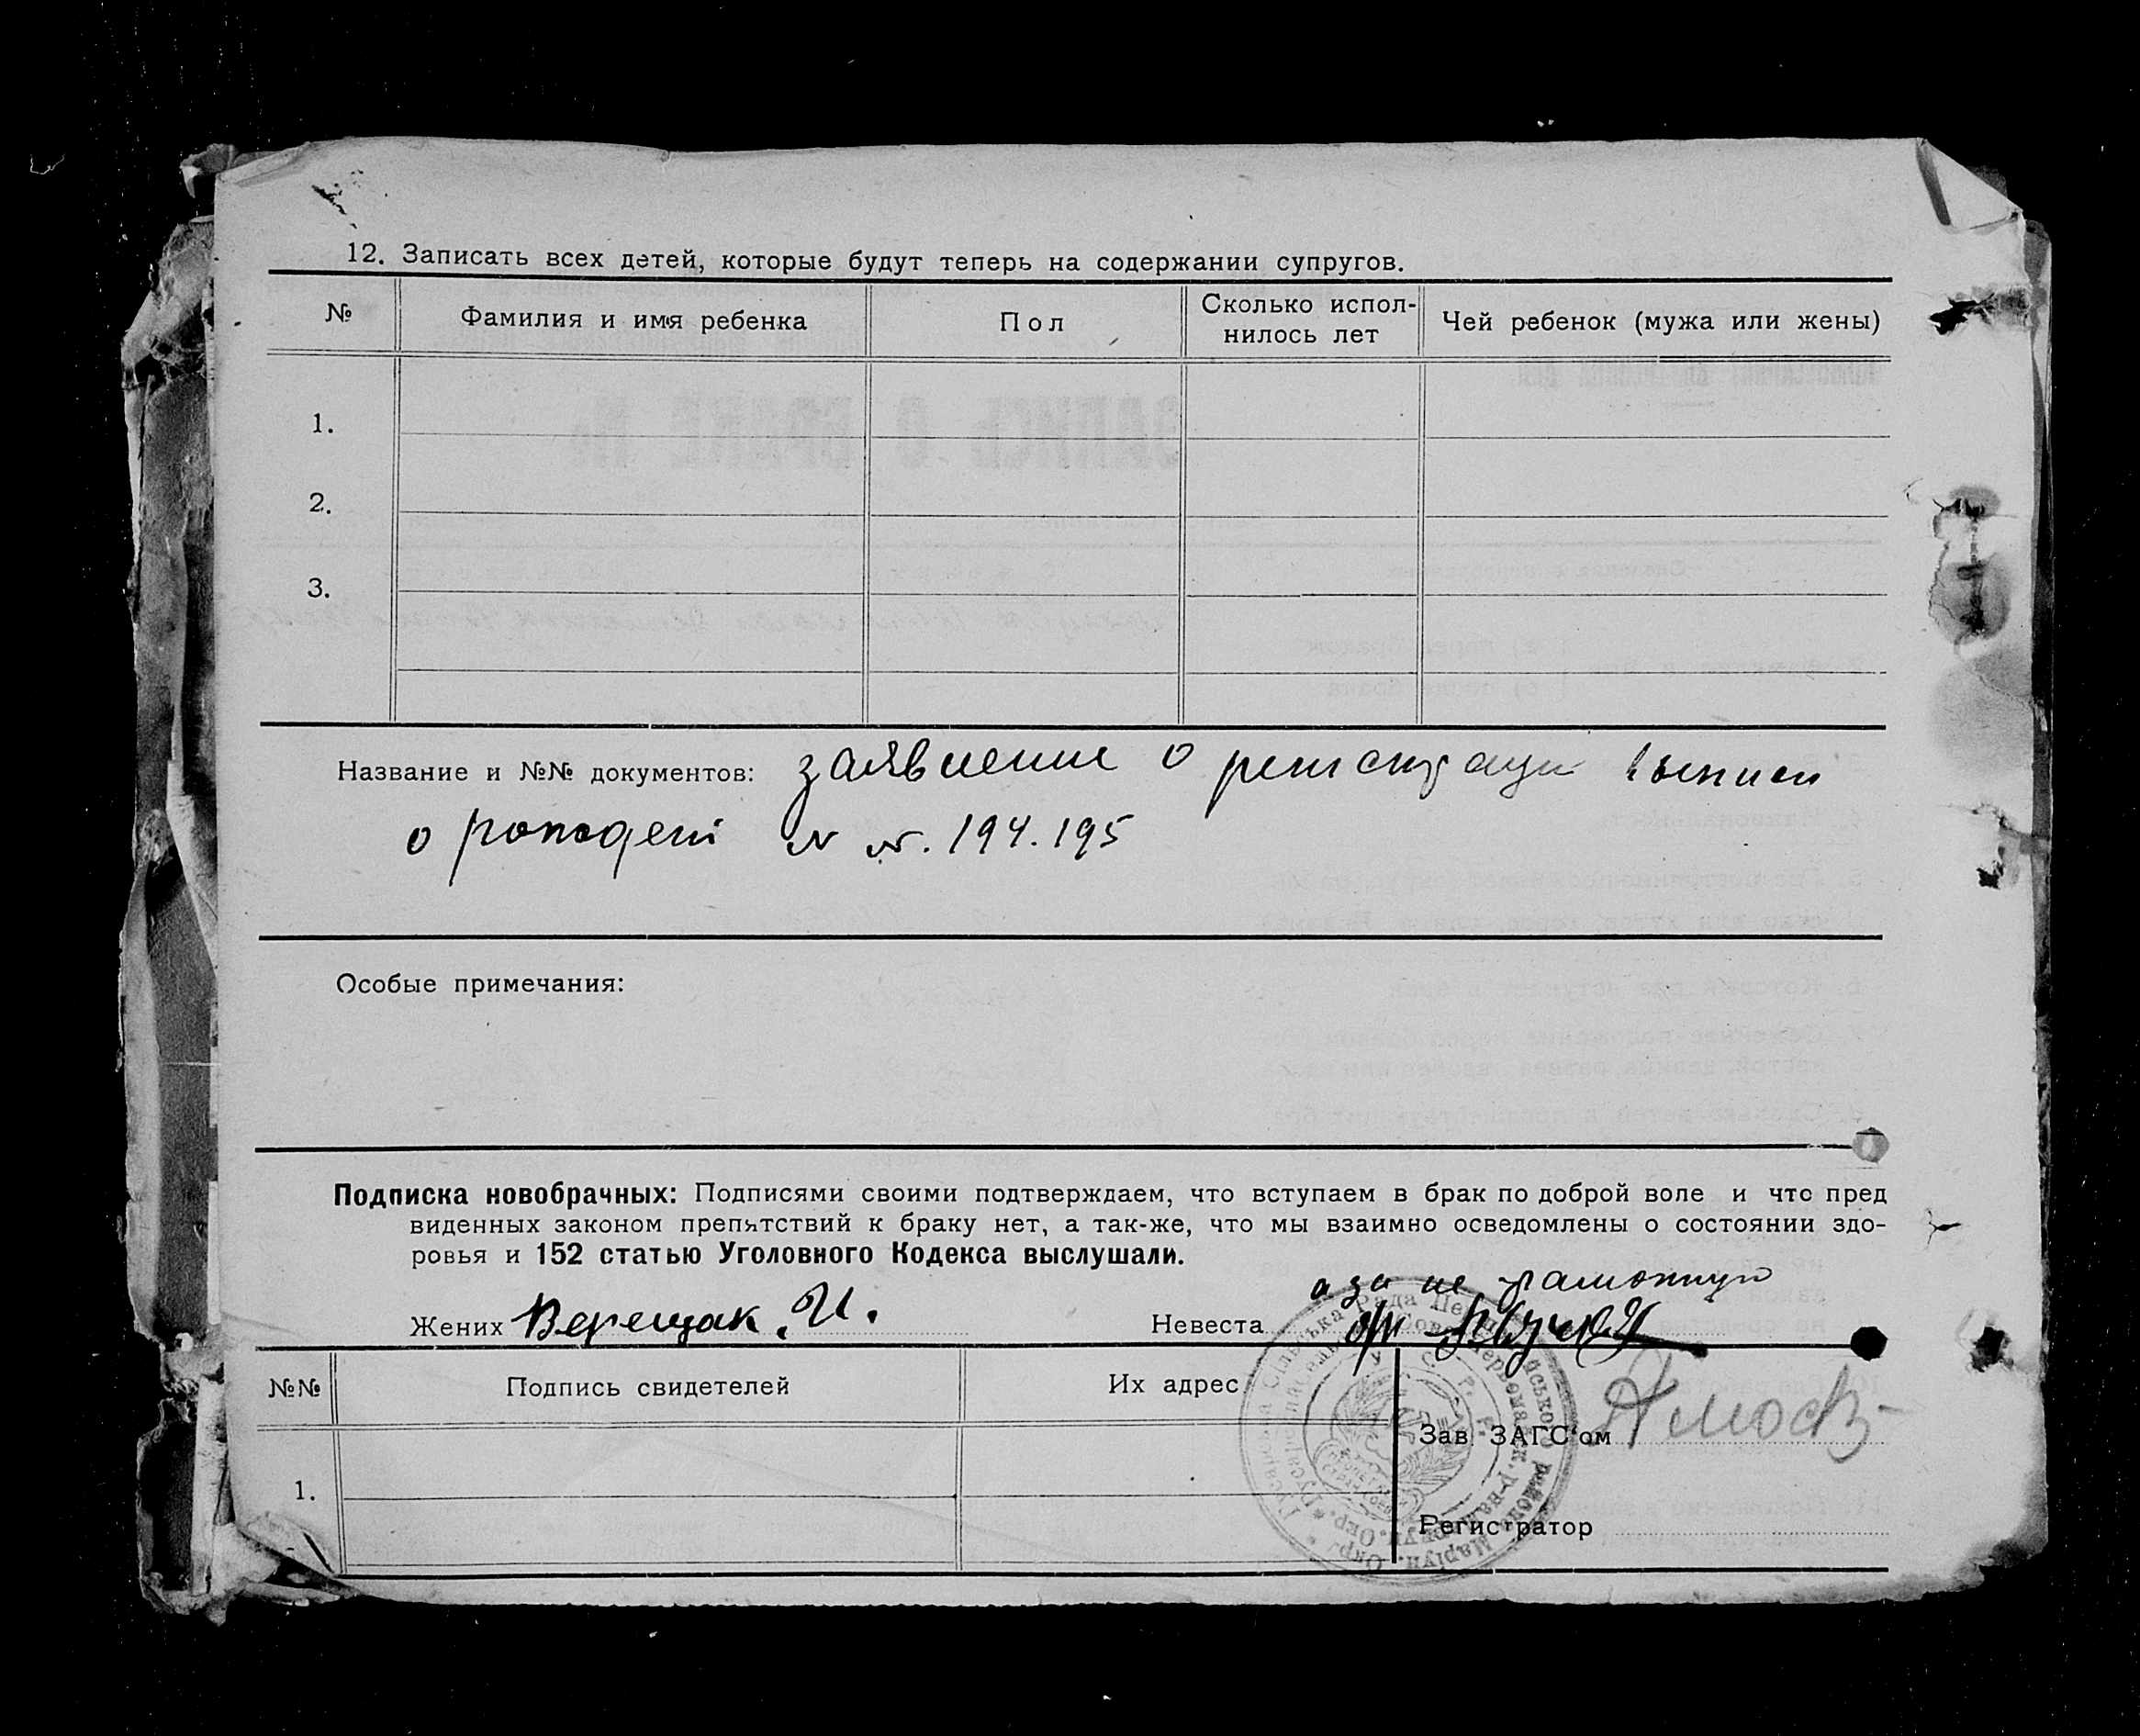 12. Записать всех детей, которые будут теперь на содержании супругов.
№
Фамилия и имя ребенка
Пол
Сколько испол-
нилось лет
Чей ребенок (мужа или жены)
1.
2.
3.
Название и №№ документов: заявление о
о N N. 194. 195
Особые примечания:
Подписка новобрачных: Подписями своими подтверждаем, что вступаем в брак по доброй воле и что пред
виденных законом препятствий к браку нет, а так-же, что мы взаимно осведомлены о состоянии здо-
ровья и 152 статью Уголовного Кодекса выслушали.
а за не грамотную
Жених Верещак. И.
Невеста
№№
Подпись свидетелей
Их адрес
Зав. ЗАГС'ом
1.
Регистратор